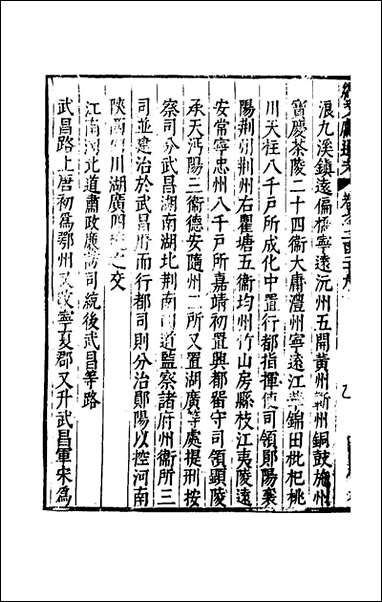 續文獻通考
浪九溪鎮遠偏橋寧遠沅州五開黃州蘄州銅鼓施州
寶慶茶陵二十四衞大庸澧州寧遠江華錦田枇杷桃
川天柱八千戶所成化中置行都指揮使司領鄖陽襄
陽荆州荆州右瞿塘五衞均州竹山房縣枝江夷陵遠
安常寧忠州八千戶所嘉靖初置興都留守司領顯陵
承天沔陽三衞德安隨州二所又置湖廣等處提刑按
察司分武昌湖南湖北荆南四道監察諸府州衞所三
司並建治於武昌府而行都司則分治鄖陽以控河南
陝西四川湖廣四之交
江南河北道肅政廉訪司統後武昌等路
武昌路上唐初爲鄂州又改寧夏郡又升武昌軍宋爲